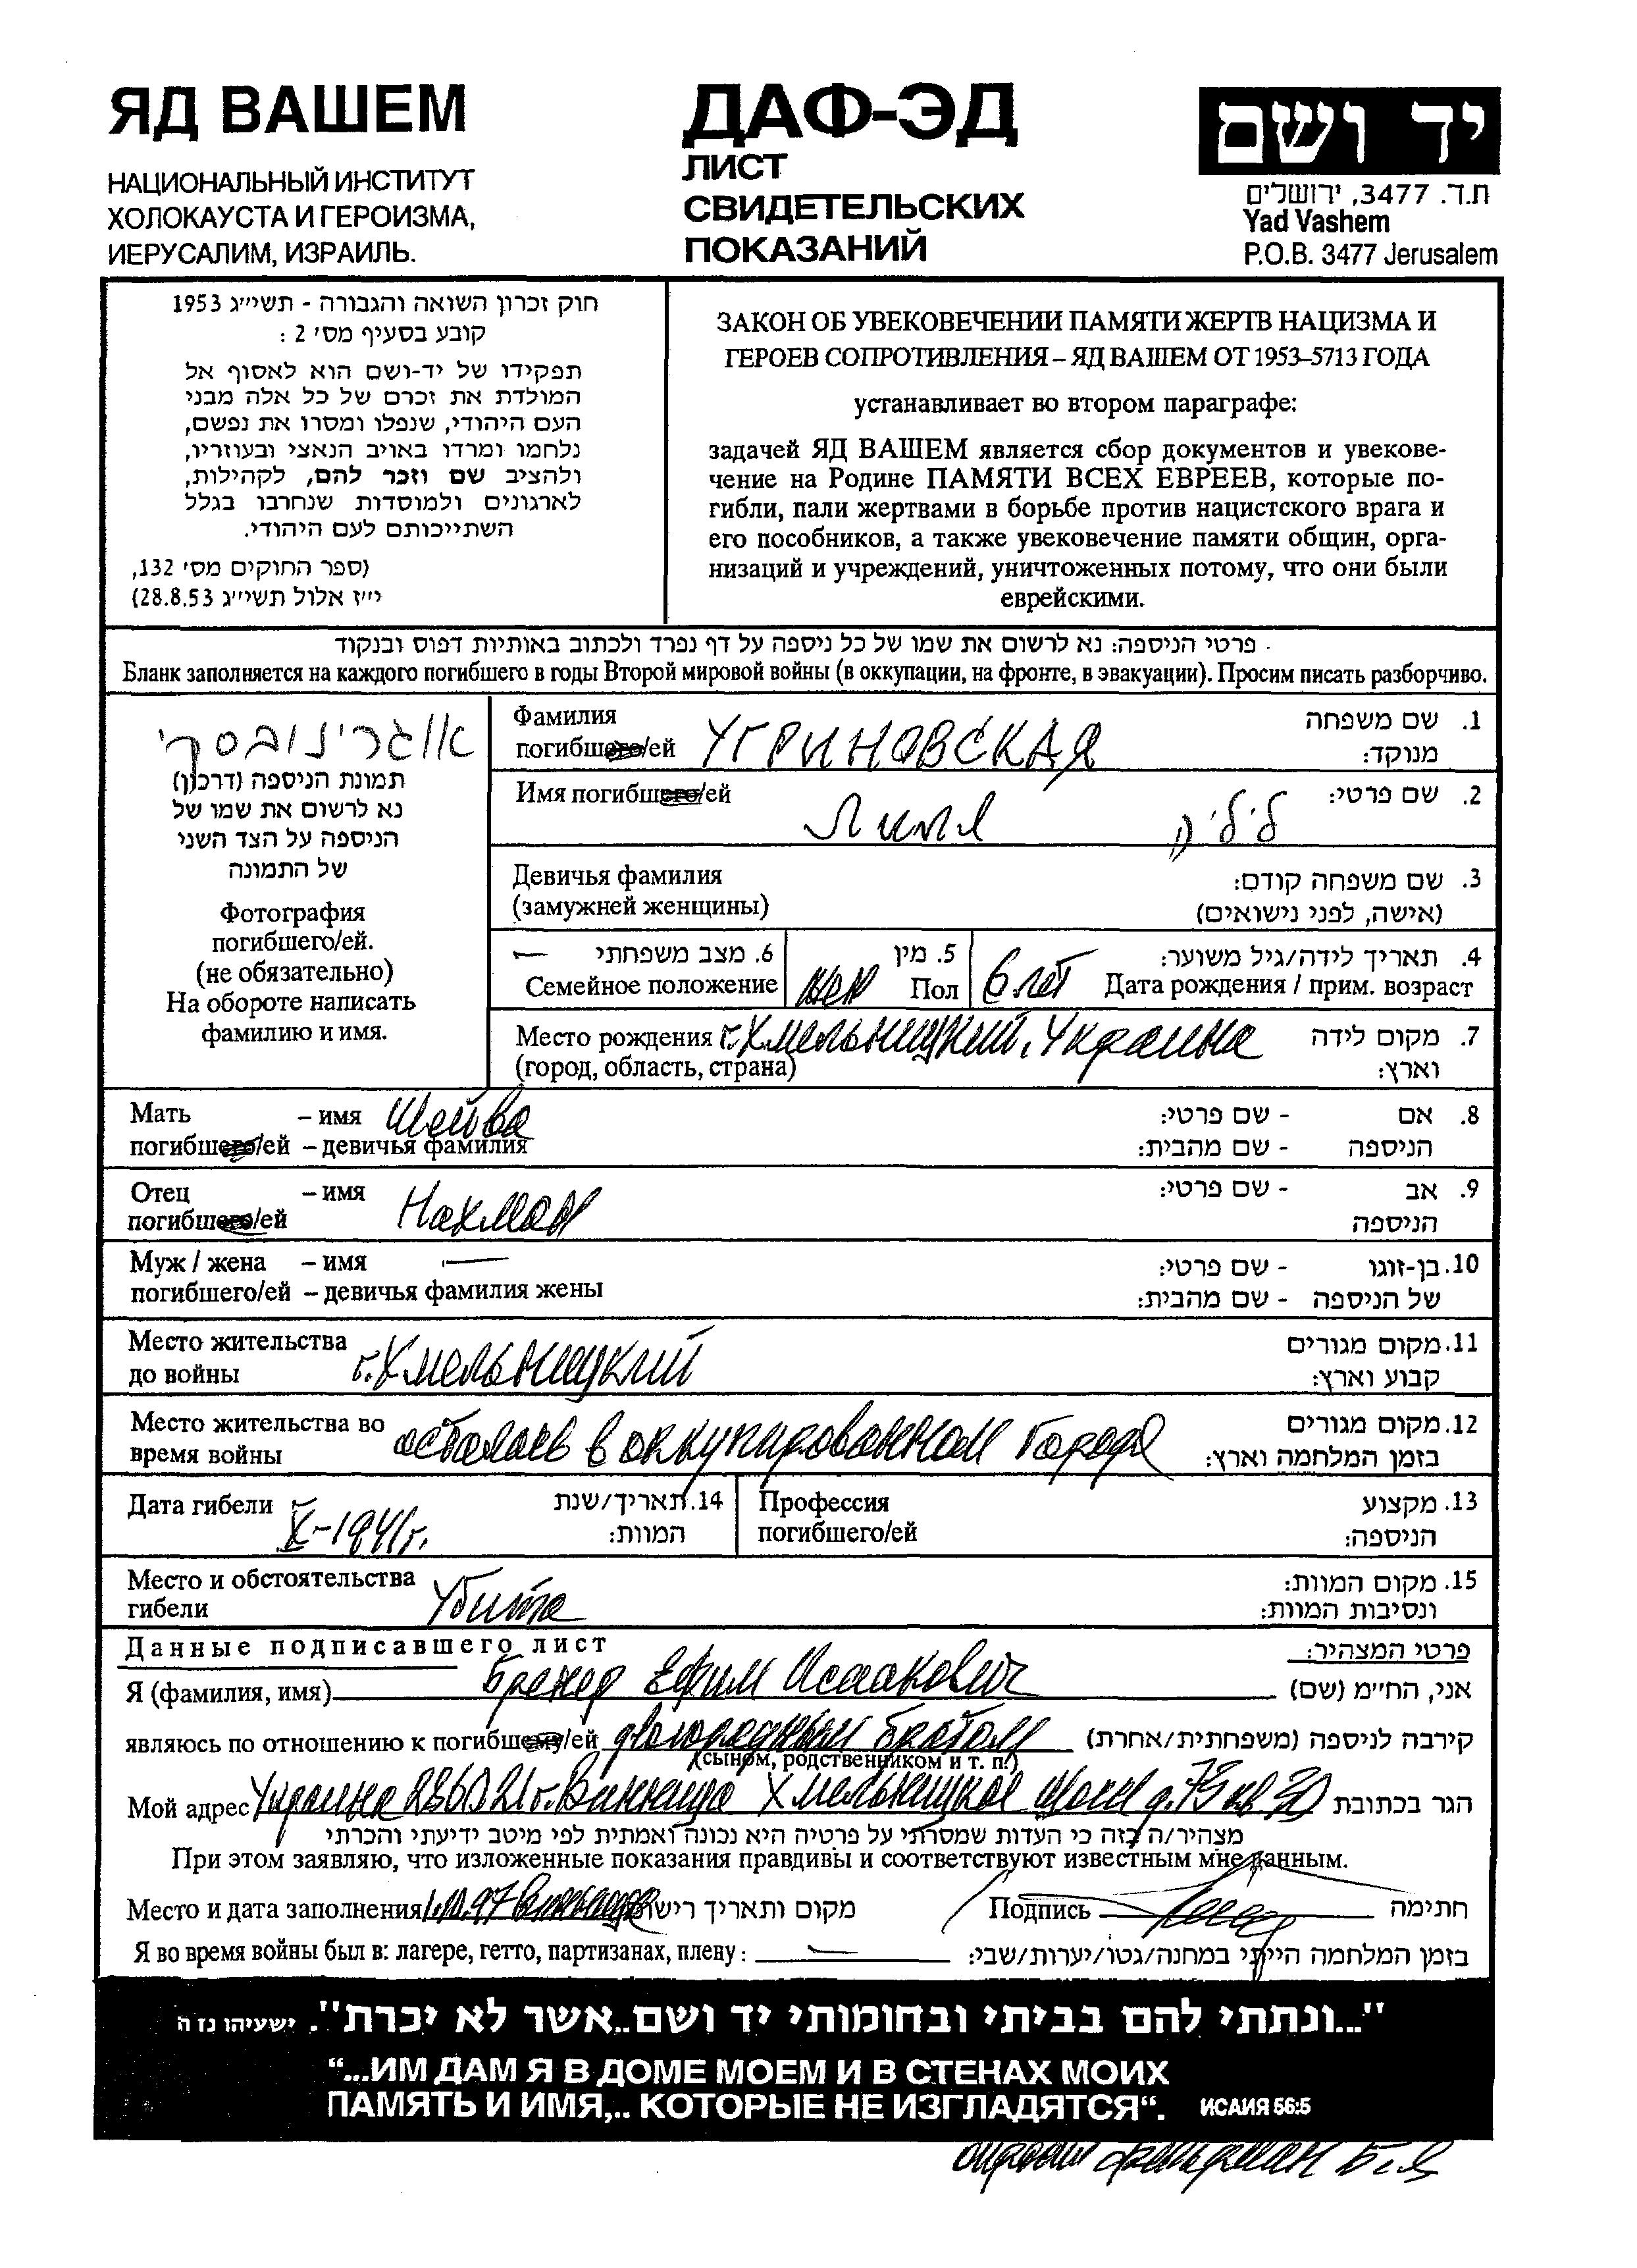 ЯД ВАШЕМ
НАЦИОНАЛЬНЫЙ ИНСТИТУТ
ХОЛОКАУСТА И ГЕРОИЗМА,
ИЕРУСАЛИМ, ИЗРАИЛЬ.
ДАФ-ЭД
ЛИСТ
СВИДЕТЕЛЬСКИХ
ПОКАЗАНИЙ
יד ושם
ת.ד. 3477, ירושלים
Yad Vashem
P.O.B. 3477 Jerusalem
חוק זכרון השואה והגבורה - תשי״ג 1953
קובע בסעיף מס׳ 2 :
תפקידו של יד-ושם הוא לאסוף אל
המולדת את זכרם של כל אלה מבני
העם היהודי, שנפלו ומסרו את נפשם,
נלחמו ומרדו באויב הנאצי ובעוזריו,
ולהציב שם וזכר להם, לקהילות,
לארגונים ולמוסדות שנחרבו בגלל
השתייכותם לעם היהודי.
(ספר החוקים מס׳ 132,
י״ז אלול תשי״ג 28.8.53)
ЗАКОН ОБ УВЕКОВЕЧЕНИИ ПАМЯТИ ЖЕРТВ НАЦИЗМА И
ГЕРОЕВ СОПРОТИВЛЕНИЯ – ЯД ВАШЕМ ОТ 1953–5713 ГОДА
устанавливает во втором параграфе:
задачей ЯД ВАШЕМ является сбор документов и увекове-
чение на Родине ПАМЯТИ ВСЕХ ЕВРЕЕВ, которые по-
гибли, пали жертвами в борьбе против нацистского врага и
его пособников, а также увековечение памяти общин, орга-
низаций и учреждений, уничтоженных потому, что они были
еврейскими.
פרטי הניספה: נא לרשום את שמו של כל ניספה על דף נפרד ולכתוב באותיות דפוס ובנקוד
Бланк заполняется на каждого погибшего в годы Второй мировой войны (в оккупации, на фронте, в эвакуации). Просим писать разборчиво.
אוגרינובסקי
תמונת הניספה (דרכון)
נא לרשום את שמו של
הניספה על הצד השני
של התמונה
Фотография
погибшего/ей.
(не обязательно)
На обороте написать
фамилию и имя.
Фамилия 1. שם משפחה
погибшего/ей УГРИНОВСКАЯ מנוקד:
Имя погибшего/ей 2. שם פרטי:
Лиля ליליה
Девичья фамилия 3. שם משפחה קודם:
(замужней женщины) (אישה, לפני נישואים)
— 6. מצב משפחתי 5. מין 4. תאריך לידה/גיל משוער:
Семейное положение жен Пол 6 лет Дата рождения / прим. возраст
Место рождения г. Хмельницкий, Украина 7. מקום לידה
(город, область, страна) וארץ:
Мать – имя Шейва 8. אם - שם פרטי:
погибшего/ей – девичья фамилия הניספה - שם מהבית:
Отец – имя Нахман 9. אב - שם פרטי:
погибшего/ей הניספה
Муж / жена – имя — 10. בן-זוגו - שם פרטי:
погибшего/ей – девичья фамилия жены של הניספה - שם מהבית:
Место жительства 11. מקום מגורים
до войны г. Хмельницкий קבוע וארץ:
Место жительства во осталась в оккупированном городе 12. מקום מגורים
время войны בזמן המלחמה וארץ:
Дата гибели X-1941г. 14. תאריך/שנת Профессия 13. מקצוע
המוות: погибшего/ей הניספה:
Место и обстоятельства 15. מקום המוות:
гибели Убита ונסיבות המוות:
Данные подписавшего лист פרטי המצהיר:
Я (фамилия, имя) Ефим Исаакович אני, החי״מ (שם)
являюсь по отношению к погибшему/ей двоюродным братом קירבה לניספה (משפחתית/אחרת)
(сыном, родственником и т. п.)
Мой адрес Украина 286021 г. Винница Хмельницкое шоссе д. 75 кв הגר בכתובת
מצהיר/ה בזה כי העדות שמסרתי על פרטיה היא נכונה ואמתית לפי מיטב ידיעתי והכרתי
При этом заявляю, что изложенные показания правдивы и соответствуют известным мне данным.
Место и дата заполнения Винница מקום ותאריך רישום Подпись חתימה
Я во время войны был в: лагере, гетто, партизанах, плену: — בזמן המלחמה הייתי במחנה/גטו/יערות/שבי:
"...ונתתי להם בביתי ובחומותי יד ושם..אשר לא יכרת". ישעיהו נו ה
“...ИМ ДАМ Я В ДОМЕ МОЕМ И В СТЕНАХ МОИХ
ПАМЯТЬ И ИМЯ,.. КОТОРЫЕ НЕ ИЗГЛАДЯТСЯ“. ИСАИЯ 56:5